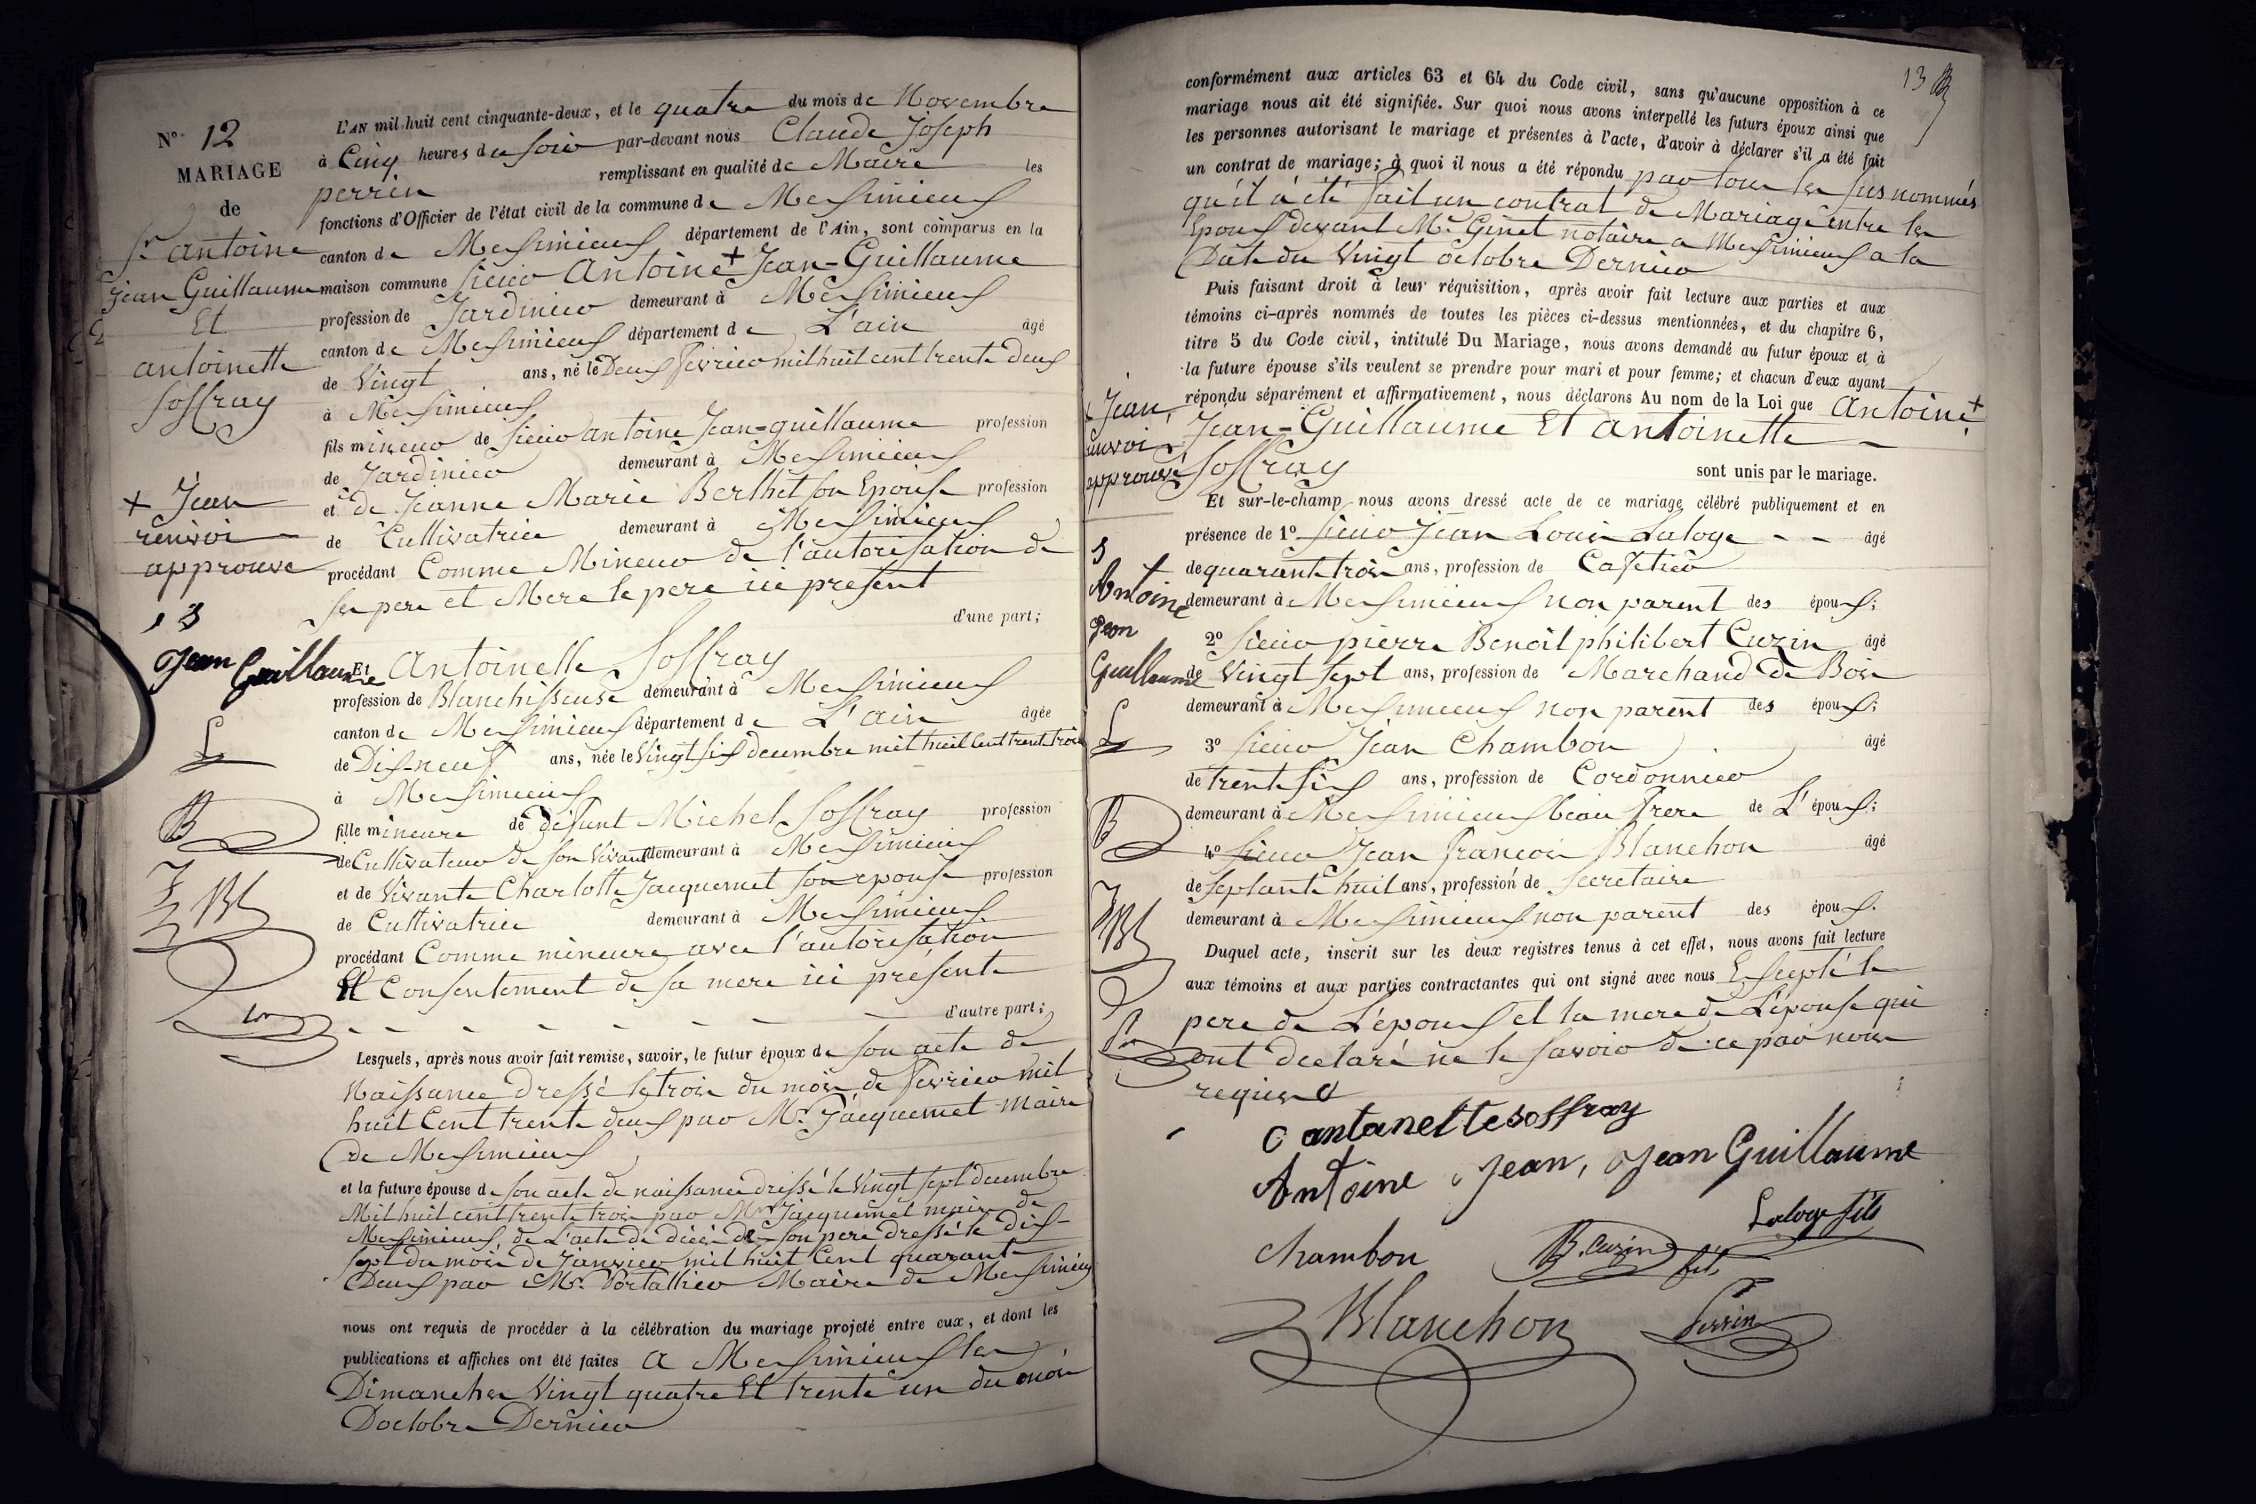 N° 12
MARIAGE
de
Sr antoine
Jean Guillaume
Et
antoinette
Soffray
+ Jean
renvoi
approuvé
Jean Guillaume
L
B
L'AN mil huit cent cinquante-deux, et le quatre du mois de Novembre
à Cinq heures du soir par-devant nous Claude Joseph
perrin remplissant en qualité de Maire les
fonctions d'Officier de l'état civil de la commune de Meximieux
canton de Meximieux département de l'Ain, sont comparus en la
maison commune sieur Antoine + Jean-Guillaume
profession de Jardinier demeurant à Meximieux
canton de Meximieux département de L'ain âgé
de Vingt ans, né le Deux fevrier mil huit cent trente deux
à Meximieux
fils mineur de sieur antoine Jean-guillaume profession
de Jardinier demeurant à Meximieux
et de Jeanne Marie Berthet son Epouse profession
de Cultivatrice demeurant à Meximieux
procédant Comme Mineur de l'autorisation de
ses pere et Mere le pere ici present
d'une part;
Et Antoinette Soffray
profession de Blanchisseuse demeurant à Meximieux
canton de Meximieux département de L'ain âgée
de Dix-neuf ans, née le Vingt six decembre mil huit cent trente trois
à Meximieux
fille mineure de défunt Michel Soffray profession
de Cultivateur de son Vivant demeurant à Meximieux
et de Vivante Charlotte Jacquemet son epouse profession
de Cultivatrice demeurant à Meximieux
procédant Comme mineure avec l'autorisation
Et Consentement de sa mere ici présente
d'autre part;
Lesquels, après nous avoir fait remise, savoir, le futur époux de son acte de
Naissance Dressé le trois du mois de fevrier mil
huit Cent trente deux par Mr. Jacquemet Maire
de Meximieux
et la future épouse de son acte de naissance dressé le Vingt sept decembre
Mil huit cent trente trois par Mr Jacquemet maire de
Meximieux, de L'acte de décès de son pere dressé le dix-
sept du mois de Janvier mil huit Cent quarante
Deux par Mr. Portallier Maire de Meximieux
nous ont requis de procéder à la célébration du mariage projeté entre eux, et dont les
publications et affiches ont été faites a Meximieux les
Dimanches Vingt quatre Et trente un du mois
Doctobre Dernier
13
conformément aux articles 63 et 64 du Code civil, sans qu'aucune opposition à ce
mariage nous ait été signifiée. Sur quoi nous avons interpellé les futurs époux ainsi que
les personnes autorisant le mariage et présentes à l'acte, d'avoir à déclarer s'il a été fait
un contrat de mariage; à quoi il nous a été répondu par tous les susnommés
qu'il a été fait un contrat de Mariage entre les
Epoux devant Mr. Ginet notaire a Meximieux a la
Date du Vingt octobre Dernier
Puis faisant droit à leur réquisition, après avoir fait lecture aux parties et aux
témoins ci-après nommés de toutes les pièces ci-dessus mentionnées, et du chapitre 6,
titre 5 du Code civil, intitulé Du Mariage, nous avons demandé au futur époux et à
la future épouse s'ils veulent se prendre pour mari et pour femme; et chacun d'eux ayant
répondu séparément et affirmativement, nous déclarons Au nom de la Loi que Antoine +
Jean-Guillaume Et antoinette
Soffray sont unis par le mariage.
Et sur-le-champ nous avons dressé acte de ce mariage célébré publiquement et en
présence de 1° sieur Jean Louis Laloge âgé
de quarante trois ans, profession de Cafetier
demeurant à Meximieux non parent des époux;
2° sieur pierre Benoît philibert Cuzin âgé
de Vingt sept ans, profession de Marchand de Bois
demeurant à Meximieux non parent des époux;
3° sieur Jean Chambon âgé
de trente six ans, profession de Cordonnier
demeurant à Meximieux beau frere de L'époux;
4° sieur Jean françois Blanchon âgé
de septante huit ans, profession de secretaire
demeurant à Meximieux non parent des époux.
Duquel acte, inscrit sur les deux registres tenus à cet effet, nous avons fait lecture
aux témoins et aux parties contractantes qui ont signé avec nous Excepté le
pere de L'époux et la mere de L'épouse qui
ont declaré ne le savoir de ce par nous
requis
+ Jean,
renvoi
approuvé
Antoine
Jean
Guillaume
L
B
antanette soffray
Antoine Jean, Jean Guillaume
Laloge fils
Chambon B. Cuzin fils
Blanchon Perrin